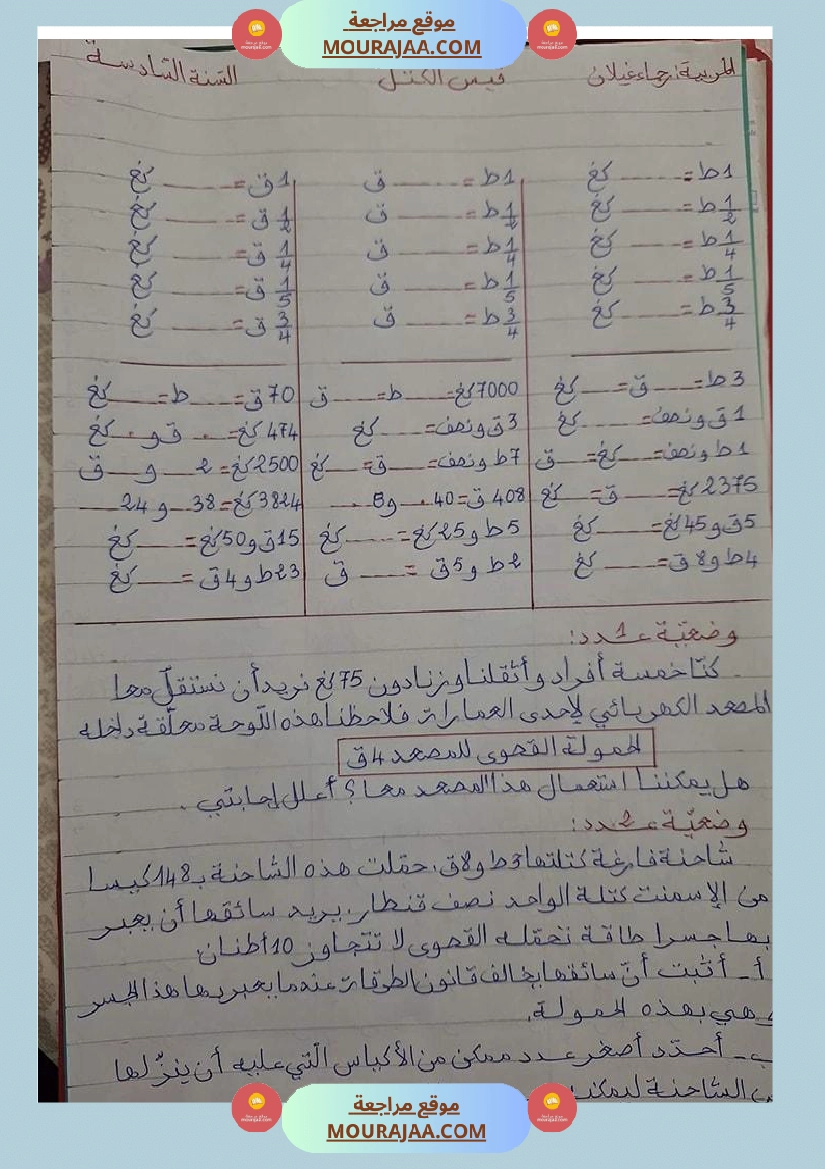 موقع مراجعة
MOURAJAA.COM
المربية: رجاء غيلان قيس الكتل السنة السادسة
1ط = ...... كغ 1ط = ...... ق 1ق = ...... كغ
1/2 ط = ...... كغ 1/2 ط = ...... ق 1/2 ق = ...... كغ
1/4 ط = ...... كغ 1/4 ط = ...... ق 1/4 ق = ...... كغ
1/5 ط = ...... كغ 1/5 ط = ...... ق 1/5 ق = ...... كغ
3/4 ط = ...... كغ 3/4 ط = ...... ق 3/4 ق = ...... كغ
3ط = ...... ق = ...... كغ 7000كغ = ...... ط = ...... ق 70ق = ...... ط = ...... كغ
1ق ونصف = ...... كغ 3ق ونصف = ...... كغ 474كغ = ...... ق و ...... كغ
1ط ونصف = ...... كغ = ...... ق 7ط ونصف = ...... ق = ...... كغ 2500كغ = 2 ...... و ...... ق
2375كغ = ...... ق = ...... كغ 408ق = 40 ...... و 8 ...... 3824كغ = 38 ...... و 24 ......
5ق و 45كغ = ...... كغ 5ط و 25كغ = ...... كغ 15ق و 50كغ = ...... كغ
4ط و 8ق = ...... كغ 2ط و 5ق = ...... ق 23ط و 4ق = ...... كغ
وضعيّة عـ1ـدد:
كنّا خمسة أفراد وأثقلنا وزنا دون 75كغ نريد أن نستقلّ معا
المصعد الكهربائي لإحدى العمارات فلاحظنا هذه اللّوحة معلّقة داخله
الحمولة القصوى للمصعد 4ق
هل يمكننا استعمال هذا المصعد معا؟ أعلل إجابتي.
وضعيّة عـ2ـدد:
شاحنة فارغة كتلتها 3ط و 8ق، حمّلت هذه الشاحنة بـ 148 كيسا
من الإسمنت كتلة الواحد نصف قنطار، يريد سائقها أن يعبر
بها جسرا طاقة تحمّله القصوى لا تتجاوز 10 أطنان
أ- أثبت أنّ سائقها يخالف قانون الطرقات عندما يعبر بها هذا الجسر
وهي بهذه الحمولة.
ب- أحدّد أصغر عدد ممكن من الأكياس الّتي عليه أن ينزّلها
من الشاحنة ليمكنه
موقع مراجعة
MOURAJAA.COM